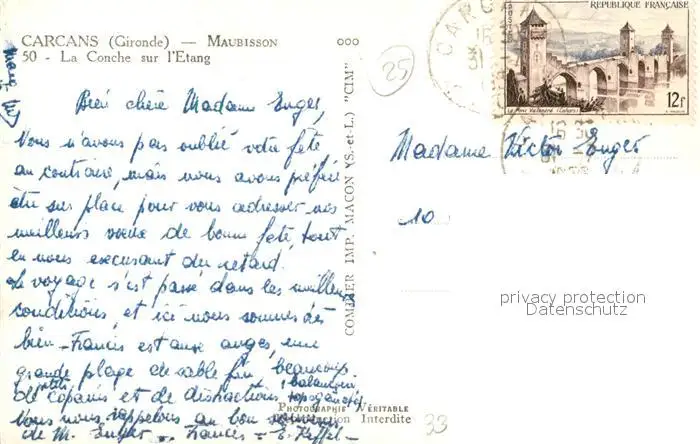 CARCANS (Gironde) — MAUBISSON
50 - La Conche sur l'Etang
Bien chère Madame Enger,
Vous n'avons pas oublié votre fête
au contraire, mais nous avons préféré
être sur place pour vous adresser nos
meilleurs vœux de bonne fête, tout
en nous excusant du retard.
Le voyage s'est passé dans les meilleures
conditions, et ici nous sommes très
bien - Francis est aux anges, une
grande plage de sable fin, beaucoup
de petits copains et de distractions, balançoire,
toboggan etc
Nous nous rappelons au bon souvenir
de M. Enger - Francis -
PHOTOGRAPHIE VÉRITABLE
Interdite
COMBIER IMP. MACON (S.-et-L.) "CIM"
25
REPUBLIQUE FRANÇAISE
POSTES
Le Pont Valentré (Cahors)
12f
CARCANS
Madame Victor Enger
10
privacy protection
Datenschutz
33